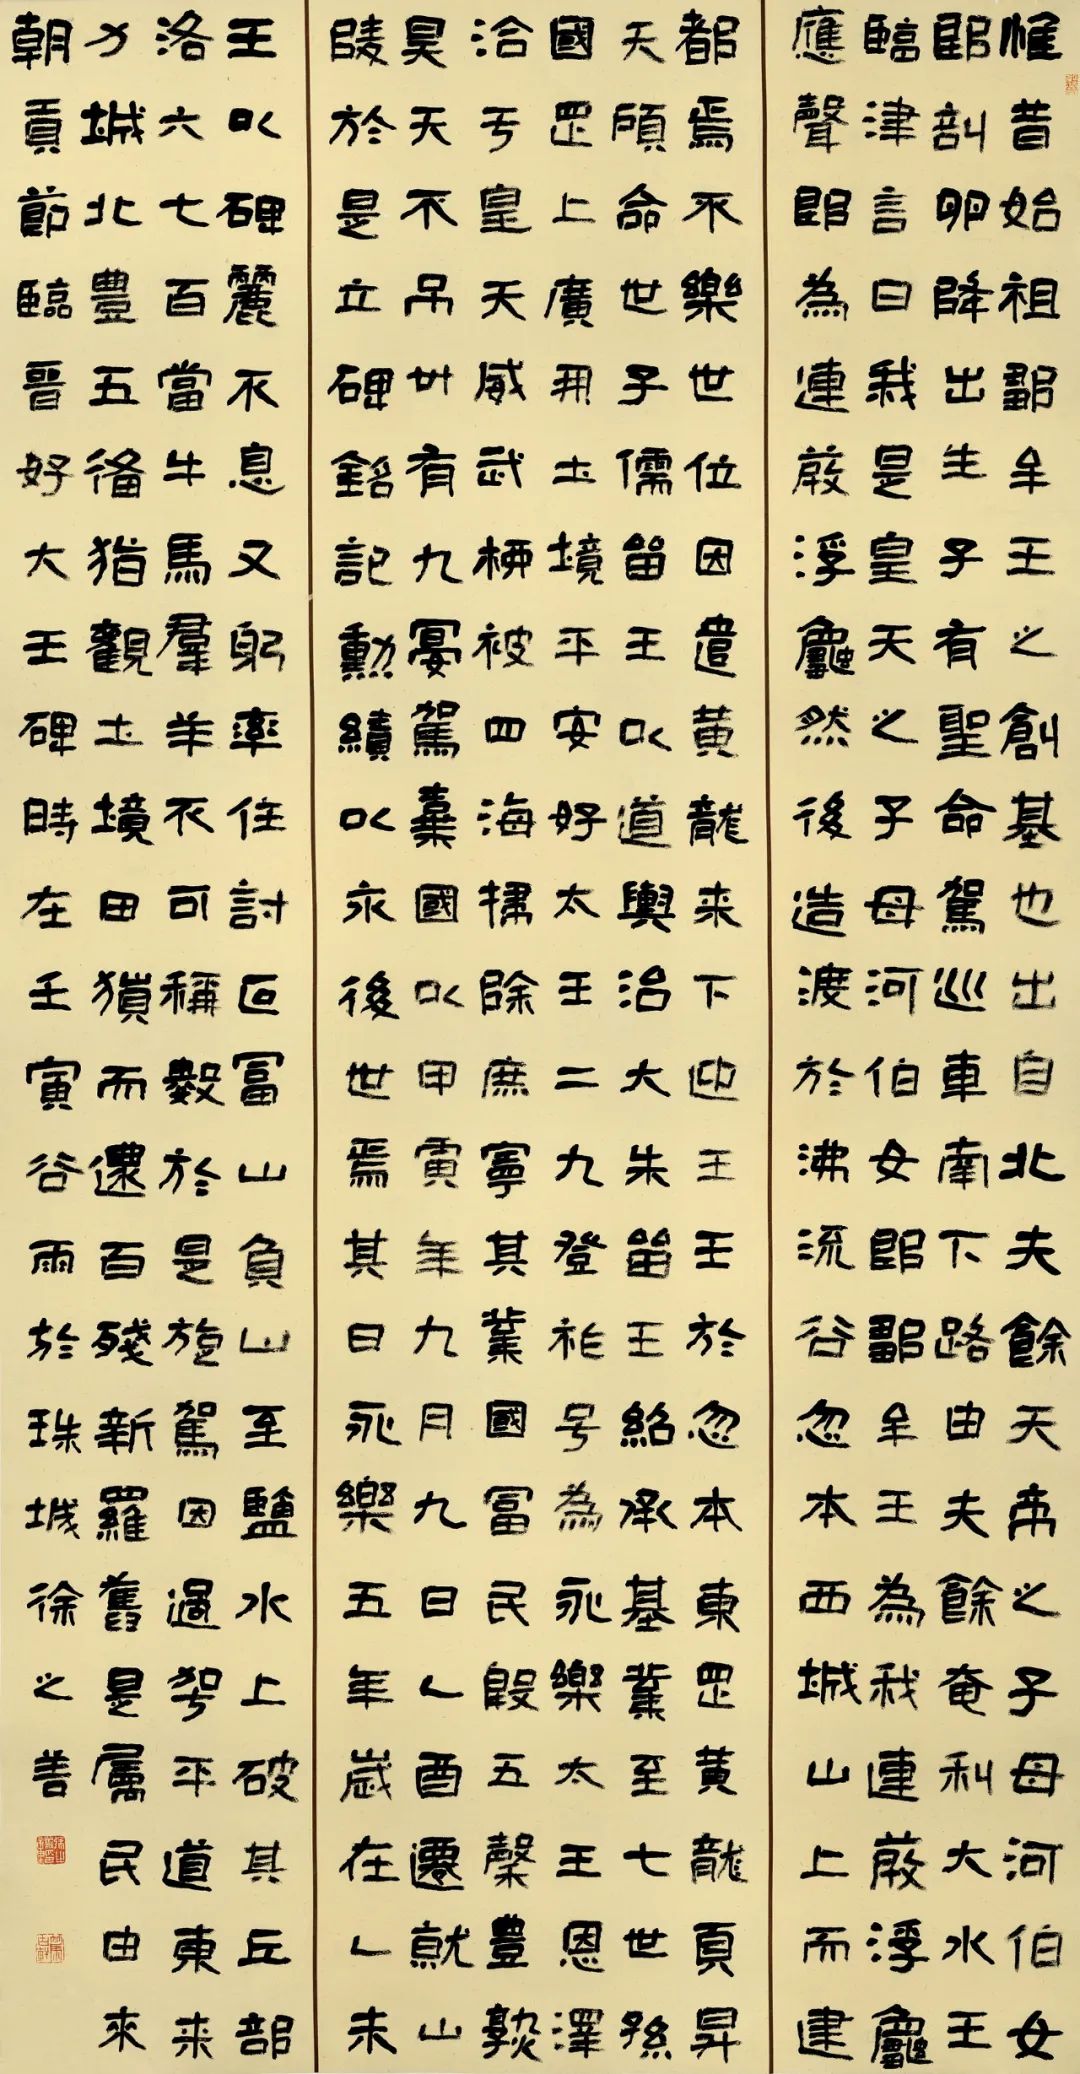 惟昔始祖鄒牟王之創基也出自北夫餘天帝之子母河伯女
郎剖卵降出生子有聖命駕巡車南下路由夫餘奄利大水王
臨津言曰我是皇天之子母河伯女郎鄒牟王為我連葭浮龜
應聲即為連葭浮龜然後造渡於沸流谷忽本西城山上而建
都焉不樂世位因遣黃龍来下迎王王於忽本東罡黃龍頁昇
天顧命世子儒留王以道輿治大朱留王紹承基業至七世孫
國罡上廣開土境平安好太王二九登祚号為永樂太王恩澤
洽于皇天威武柳被四海掃除庶寧其業國富民殷五穀豐熟
昊天不吊卅有九宴駕棄國以甲寅年九月九日乙酉遷就山
陵於是立碑銘記勳績以永後世焉其曰永樂五年歲在乙未
王以碑麗不息又躬率住討叵富山負山至鹽水上破其丘部
洛六七百當牛馬羣羊不可稱數於是旋駕因過平道東来
力城北豐五備猶觀土境田獵而還百殘新羅舊是屬民由來
朝貢節臨晉好大王碑時在壬寅谷雨於珠城徐之善